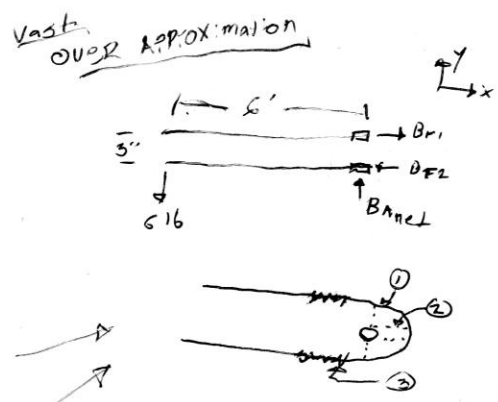 Vast
OVER APPROXimation
y
x
6'
3"
BF1
BF2
6 lb
BAnet
①
②
③